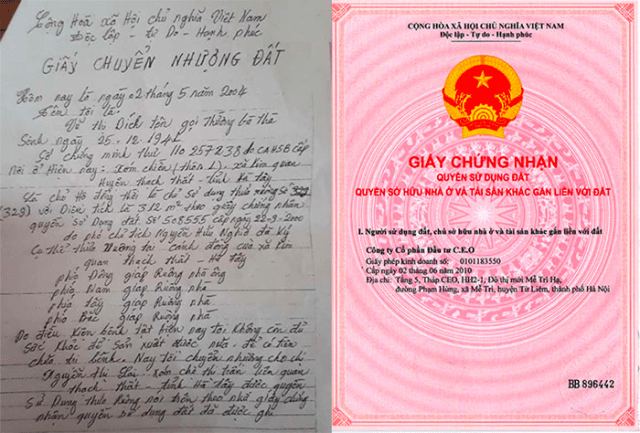 Cộng Hoà xã Hội chủ nghĩa Việt Nam
Độc lập - Tự Do - Hạnh phúc
GIẤY CHUYỂN NHƯỢNG ĐẤT
Hôm nay là ngày 02 tháng 5 năm 2004
Tên tôi là
Vũ thị Dích tên gọi thường bà thà
Sinh ngày 25-12-194
Số chứng minh thư 110 257238 do CAHSB cấp
Nơi ở Hiện nay: Xóm chiến (thôn 1) xã kim quan
Huyện thạch thất - tỉnh Hà tây
chủ Hộ đồng thời là chủ sử dung thửa ruộng số
(329) với Diện tích là 312 m² theo giấy chứng nhân
quyền Sử dụng đất Số 508555 cấp ngày 22-9-200
do phó chủ tịch Nguyễn Hữu Nghĩa đã ký
Cụ thể thửa ruộng tại cánh đồng của xã kim
quan thạch thất - Hà tây
phía Đông giáp Ruộng nhà ông
phía Nam giáp Ruộng nhà
phía tây giáp Ruộng nhà
phía Bắc giáp Ruộng nhà
Do điều kiện bệnh tật hiện nay tôi không còn đủ
sức khoẻ để sản xuất được nữa. để có tiền
chữa trị bệnh. Nay tôi chuyển nhượng cho chị
Nguyễn thị xóm chợ thị trấn liên quan
thạch thất - tỉnh Hà tây được quyền
Sử Dụng thửa Ruộng nói trên theo như giấy chứng
nhận quyền sử dụng đất đã được ghi
CỘNG HÒA XÃ HỘI CHỦ NGHĨA VIỆT NAM
Độc lập - Tự do - Hạnh phúc
GIẤY CHỨNG NHẬN
QUYỀN SỬ DỤNG ĐẤT
QUYỀN SỞ HỮU NHÀ Ở VÀ TÀI SẢN KHÁC GẮN LIỀN VỚI ĐẤT
I. Người sử dụng đất, chủ sở hữu nhà ở và tài sản khác gắn liền với đất
Công ty Cổ phần Đầu tư C.E.O
Giấy phép kinh doanh số: 0101183550
Cấp ngày 02 tháng 06 năm 2010
Địa chỉ: Tầng 5, Tháp CEO, HH2-1, Đô thị mới Mễ Trì Hạ,
đường Phạm Hùng, xã Mễ Trì, huyện Từ Liêm, thành phố Hà Nội
BB 896442